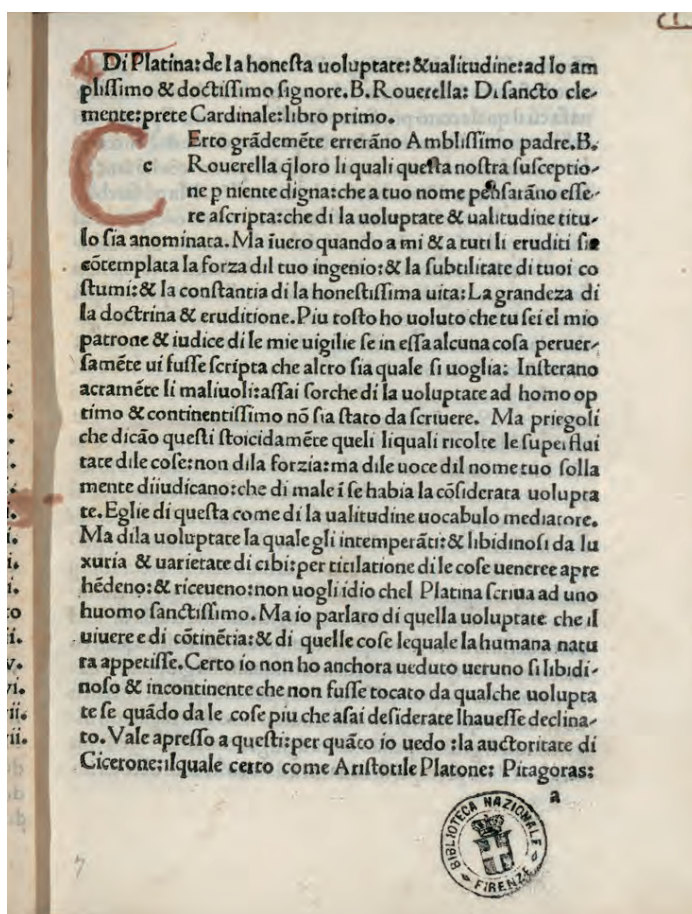 Di Platina: de la honesta uoluptate: & ualitudine: ad lo am
plissimo & doctissimo signore. B. Rouerella: Di sancto cle-
mente: prete Cardinale: libro primo.
c Erto grãdemẽte errerãno Amblissimo padre. B.
Rouerella q̃loro li quali questa nostra susceptio-
ne p niente digna: che a tuo nome pẽsarãno esse-
re ascripta: che di la uoluptate & ualitudine titu-
lo sia anominata. Ma ĩuero quando a mi & a tuti li eruditi sie
cõtemplata la forza dil tuo ingenio: & la subtilitate di tuoi co
stumi: & la constantia di la honestissima uita: La grandeza di
la doctrina & eruditione. Piu tosto ho uoluto che tu sei el mio
patrone & iudice di le mie uigilie se in essa alcuna cosa peruer-
samẽte ui fusse scripta che altro sia quale si uoglia: Insterano
acramẽte li maliuoli: assai forche di la uoluptate ad homo op
timo & continentissimo nõ sia stato da scriuere. Ma priegoli
che dicão questi stoicidamẽte queli liquali ricolte le superflui
tate dile cose: non dila forzia: ma dile uoce dil nome tuo solla
mente diiudicano: che di male ĩ se habia la cõsiderata uolupta
te. Eglie di questa come di la ualitudine uocabulo mediatore.
Ma dila uoluptate la quale gli intemperãti: & libidinosi da lu
xuria & uarietate di cibi: per titilatione di le cose ueneree apre
hẽdeno: & riceueno: non uogli idio chel Platina scriua ad uno
huomo sanctissimo. Ma io parlaro di quella uoluptate che il
uiuere e di cõtinẽtia: & di quelle cose lequale la humana natu
ra appetisse. Certo io non ho anchora ueduto ueruno si libidi-
noso & incontinente che non fusse tocato da qualche uolupta
te se quãdo da le cose piu che asai desiderate lhauesse declina-
to. Vale apresso a questi: per quãto io uedo: la auctoritate di
Cicerone: ilquale certo come Aristotile Platone: Pitagoras:
a
BIBLIOTECA NAZIONALE
FIRENZE
7